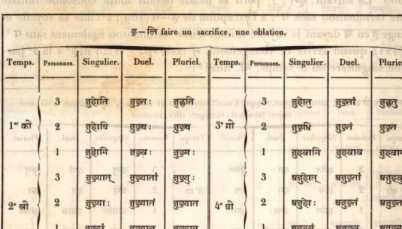 हु—लि faire un sacrifice, une oblation.
Temps. Personnes. Singulier. Duel. Pluriel. Temps. Personnes. Singulier. Duel. Plurie
3 जुहोति जुहुतः जुह्वति 3 जुहोतु जुहुतां जुह्वतु
1er की 2 जुहोषि जुहुथः जुहुथ 3e गी 2 जुहुधि जुहुतं जुहुत
1 जुहोमि जुहुवः जुहुमः 1 जुहवानि जुहवाव
3 जुहुयात् जुहुयातां जुहुयुः 3 अजुहोत् अजुहुतां
2e खी 2 जुहुयाः जुहुयातं जुहुयात 4e घी 2 अजुहोः अजुहुतं